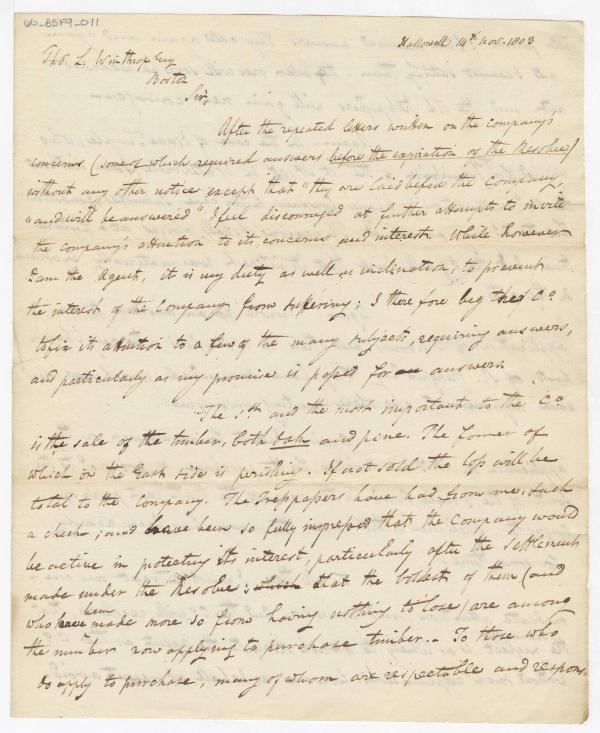 60-BSF9-011
Hallowell 14th Nov. 1803
Thos. L. Winthrop Esq
Boston
Sir,
After the repeated letters written on the company's
concerns (some of which required answers before the expiration of the Resolve)
without any other notice except that "they are laid before the Company
"and will be answered" I feel discouraged at further attempts to invite
the company's attention to its concerns and interest. While however
I am the Agent, it is my duty as well as inclination, to prevent
the interest of the Company from suffering; I therefore beg the Co.
to fix its attention to a few of the many subjects, requiring answers,
and particularly as my promise is passed for answers.
The 1st. and the most important to the Co.
is the sale of the timber, both oak and pine. The former of
which on the East side is perishing. If not sold the loss will be
total to the Company. The Tresspassers have had from me, such
a check; and have been so fully impressed that the Company would
be active in protecting its interest, particularly after the settlements
made under the Resolve: which that the boldest of them (and
who have been made more so from having nothing to lose) are among
the number now applying to purchase timber. - To those who
do apply to purchase, many of whom are respectable and respons-